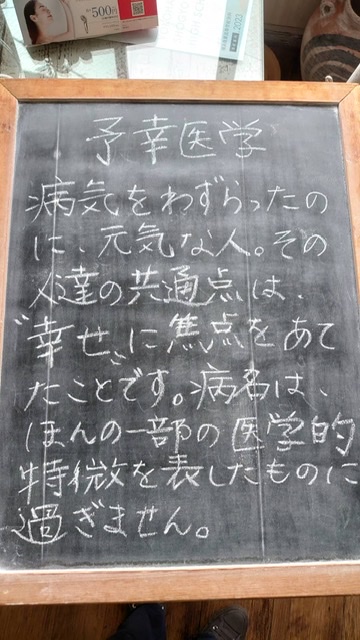 500円
2023
予幸医学
病気をわずらったの
に、元気な人。その
人達の共通点は、
"幸せ"に焦点をあて
たことです。病名は、
ほんの一部の医学的
特徴を表したものに
過ぎません。